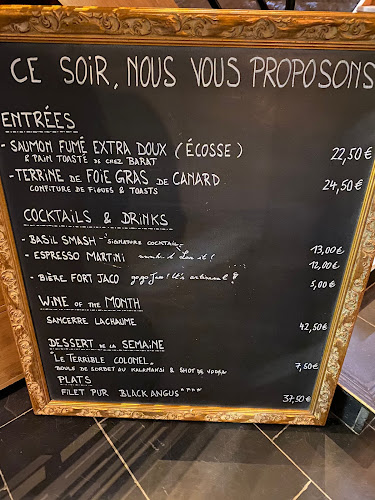 CE SOIR, NOUS VOUS PROPOSONS
ENTRÉES
- SAUMON FUMÉ EXTRA DOUX (ÉCOSSE) 22,50€
& PAIN TOASTÉ DE CHEZ BARAT
- TERRINE DE FOIE GRAS DE CANARD 24,50€
CONFITURE DE FIGUES & TOASTS
COCKTAILS & DRINKS
- BASIL SMASH - "SIGNATURE COCKTAIL" 13,00€
- ESPRESSO MARTINI 12,00€
- BIÈRE FORT JACO 5,00€
WINE OF THE MONTH
SANCERRE LACHAUME 42,50€
DESSERT DE LA SEMAINE
"LE TERRIBLE COLONEL" 7,50€
BOULE DE SORBET AU KALAMANSI & SHOT DE VODKA
PLATS
FILET PUR BLACK ANGUS**** 37,50€